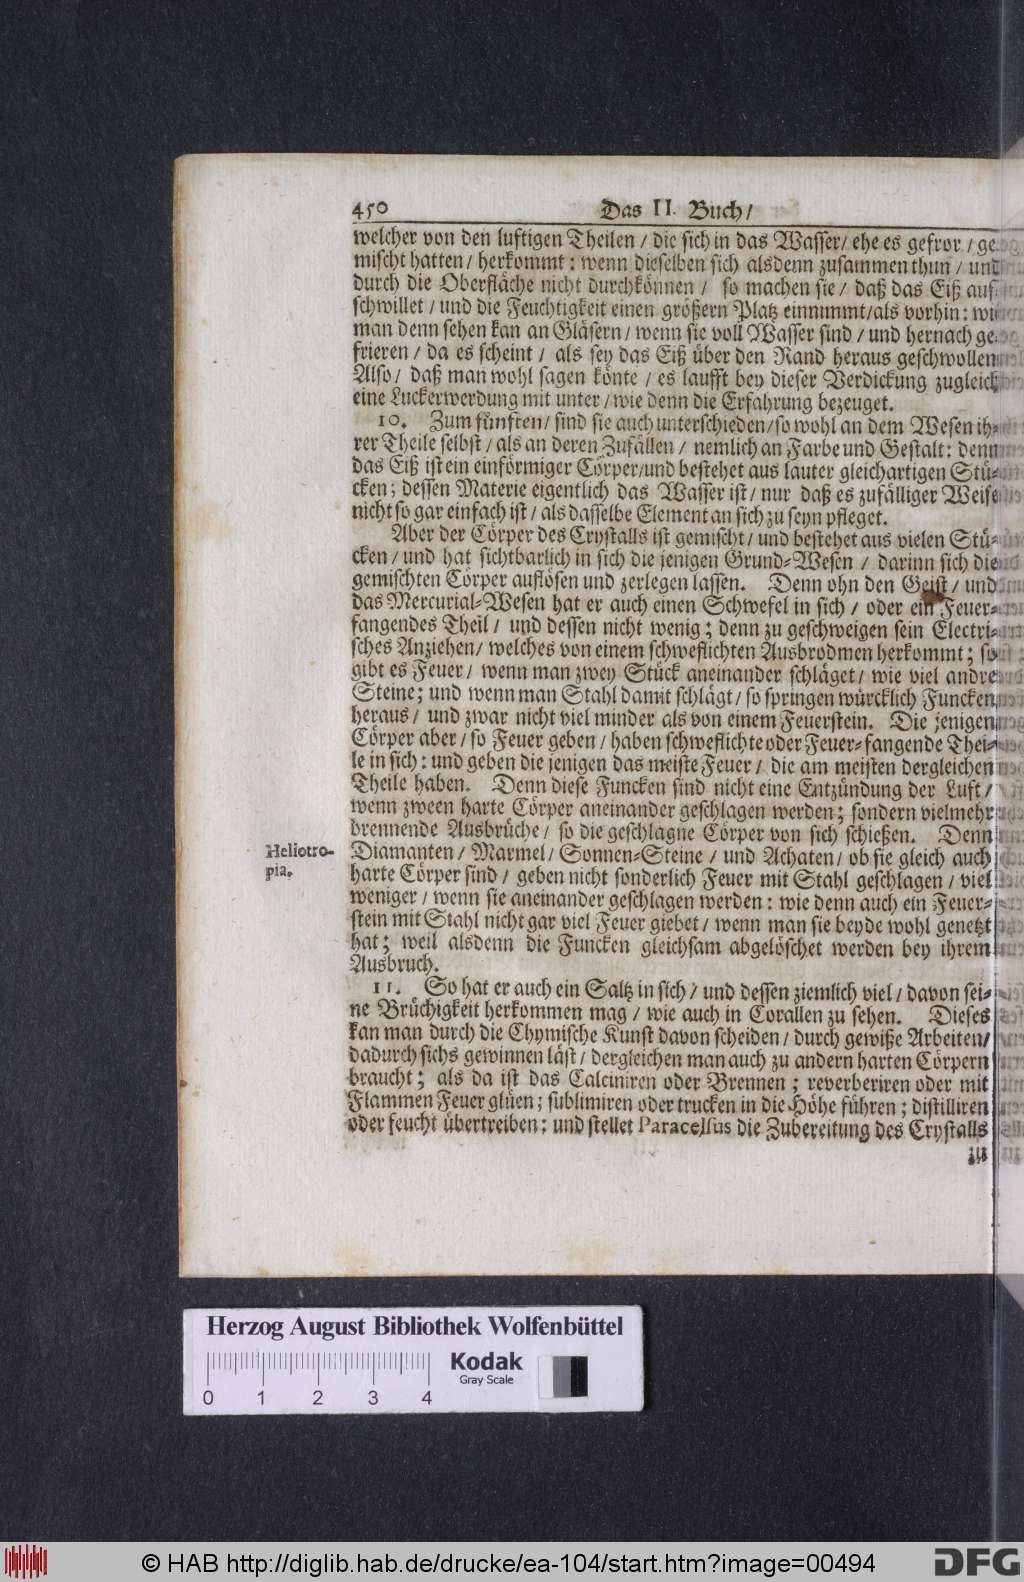 450 Das II. Buch/
welcher von den luftigen Theilen / die sich in das Wasser / ehe es gefror / ge-
mischt hatten / herkommt: wenn dieselben sich alsdenn zusammen thun / und
durch die Oberfläche nicht durchkönnen / so machen sie / daß das Eiß auf-
schwillet / und die Feuchtigkeit einen größern Platz einnimmt / als vorhin: wie
man denn sehen kan an Gläsern / wenn sie voll Wasser sind / und hernach ge-
frieren / da es scheint / als sey das Eiß über den Rand heraus geschwollen
Also / daß man wohl sagen könte / es laufft bey dieser Verdickung zugleich
eine Luckerwerdung mit unter / wie denn die Erfahrung bezeuget.
10. Zum fünften / sind sie auch unterschieden / so wohl an dem Wesen ih-
rer Theile selbst / als an deren Zufällen / nemlich an Farbe und Gestalt: denn
das Eiß ist ein einförmiger Cörper / und bestehet aus lauter gleichartigen Stü-
cken; dessen Materie eigentlich das Wasser ist / nur daß es zufälliger Weise
nicht so gar einfach ist / als dasselbe Element an sich zu seyn pfleget.
Aber der Cörper des Crystalls ist gemischt / und bestehet aus vielen Stü-
cken / und hat sichtbarlich in sich die jenigen Grund-Wesen / darinn sich die
gemischten Cörper auflösen und zerlegen lassen. Denn ohn den Geist / und
das Mercurial-Wesen hat er auch einen Schwefel in sich / oder ein Feuer-
fangendes Theil / und dessen nicht wenig; denn zu geschweigen sein Electri-
sches Anziehen / welches von einem schweflichten Ausbrodmen herkommt; so
gibt es Feuer / wenn man zwey Stück aneinander schläget / wie viel andre
Steine; und wenn man Stahl damit schlägt / so springen würcklich Funcken
heraus / und zwar nicht viel minder als von einem Feuerstein. Die jenigen
Cörper aber / so Feuer geben / haben schweflichte oder Feuer-fangende Thei-
le in sich: und geben die jenigen das meiste Feuer / die am meisten dergleichen
Theile haben. Denn diese Funcken sind nicht eine Entzündung der Luft /
wenn zween harte Cörper aneinander geschlagen werden; sondern vielmehr
brennende Ausbrüche / so die geschlagne Cörper von sich schießen. Denn
Heliotro-
pia.
Diamanten / Marmel / Sonnen-Steine / und Achaten / ob sie gleich auch
harte Cörper sind / geben nicht sonderlich Feuer mit Stahl geschlagen / viel
weniger / wenn sie aneinander geschlagen werden: wie denn auch ein Feuer-
stein mit Stahl nicht gar viel Feuer giebet / wenn man sie beyde wohl genetzt
hat; weil alsdenn die Funcken gleichsam abgelöschet werden bey ihrem
Ausbruch.
11. So hat er auch ein Saltz in sich / und dessen ziemlich viel / davon sei-
ne Brüchigkeit herkommen mag / wie auch in Corallen zu sehen. Dieses
kan man durch die Chymische Kunst davon scheiden / durch gewiße Arbeiten /
dadurch sichs gewinnen läst / dergleichen man auch zu andern harten Cörpern
braucht; als da ist das Calciniren oder Brennen; reverberiren oder mit
Flammen Feuer glüen; sublimiren oder trucken in die Höhe führen; distilliren
oder feucht übertreiben; und stellet Paracelsus die Zubereitung des Crystalls
Herzog August Bibliothek Wolfenbüttel
Kodak
Gray Scale
0 1 2 3 4
© HAB http://diglib.hab.de/drucke/ea-104/start.htm?image=00494
DFG